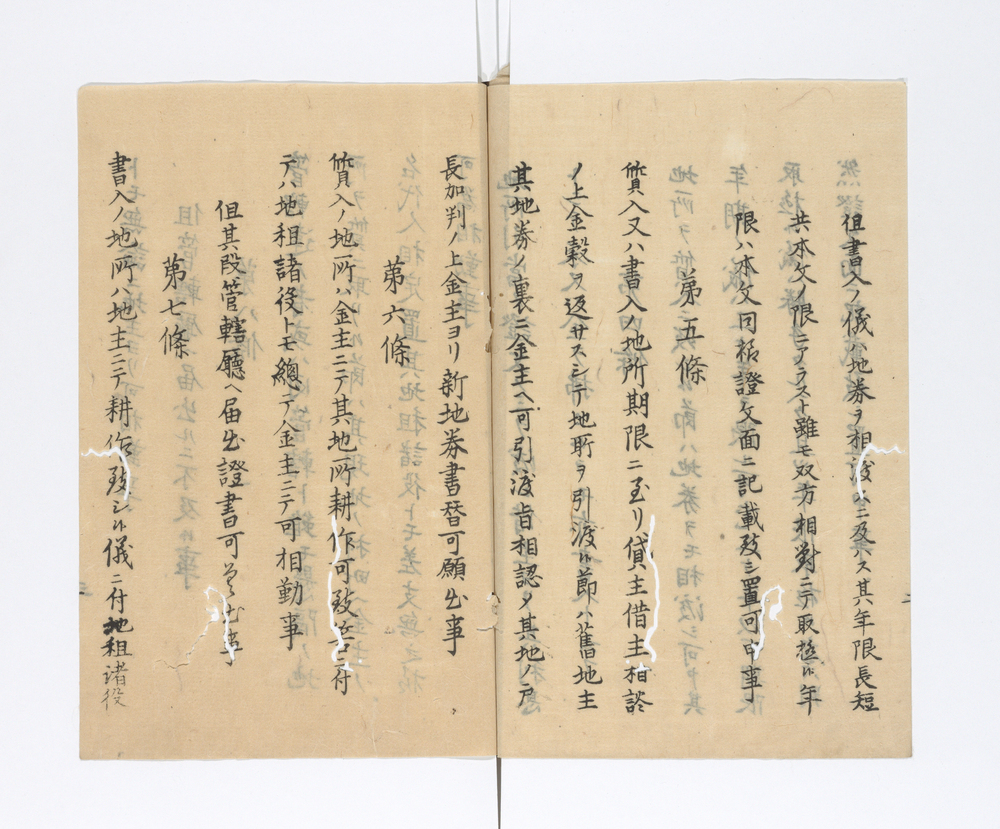 但書入ノ儀ハ地券ヲ相渡スニ及ハス其年限長短
共本文ノ限ニアラスト雖モ双方相對ニテ取極ル年
限ハ本文同樣證文面ニ記載致シ置可申事
第五條
質入又ハ書入ノ地所期限ニ至リ貸主借主相談
ノ上金穀ヲ返サスシテ地所ヲ引渡ル節ハ舊地主
其地券ノ裏ニ金主ヘ可引渡旨相認メ其地ノ戸
長加判ノ上金主ヨリ新地券書替可願出事
第六條
質入ノ地所ハ金主ニテ其地所耕作可致筈ニ付
テハ地租諸役トモ總テ金主ニテ可相勤事
但其段管轄廳ヘ届出證書可差出事
第七條
書入ノ地所ハ地主ニテ耕作致シル儀ニ付地租諸役